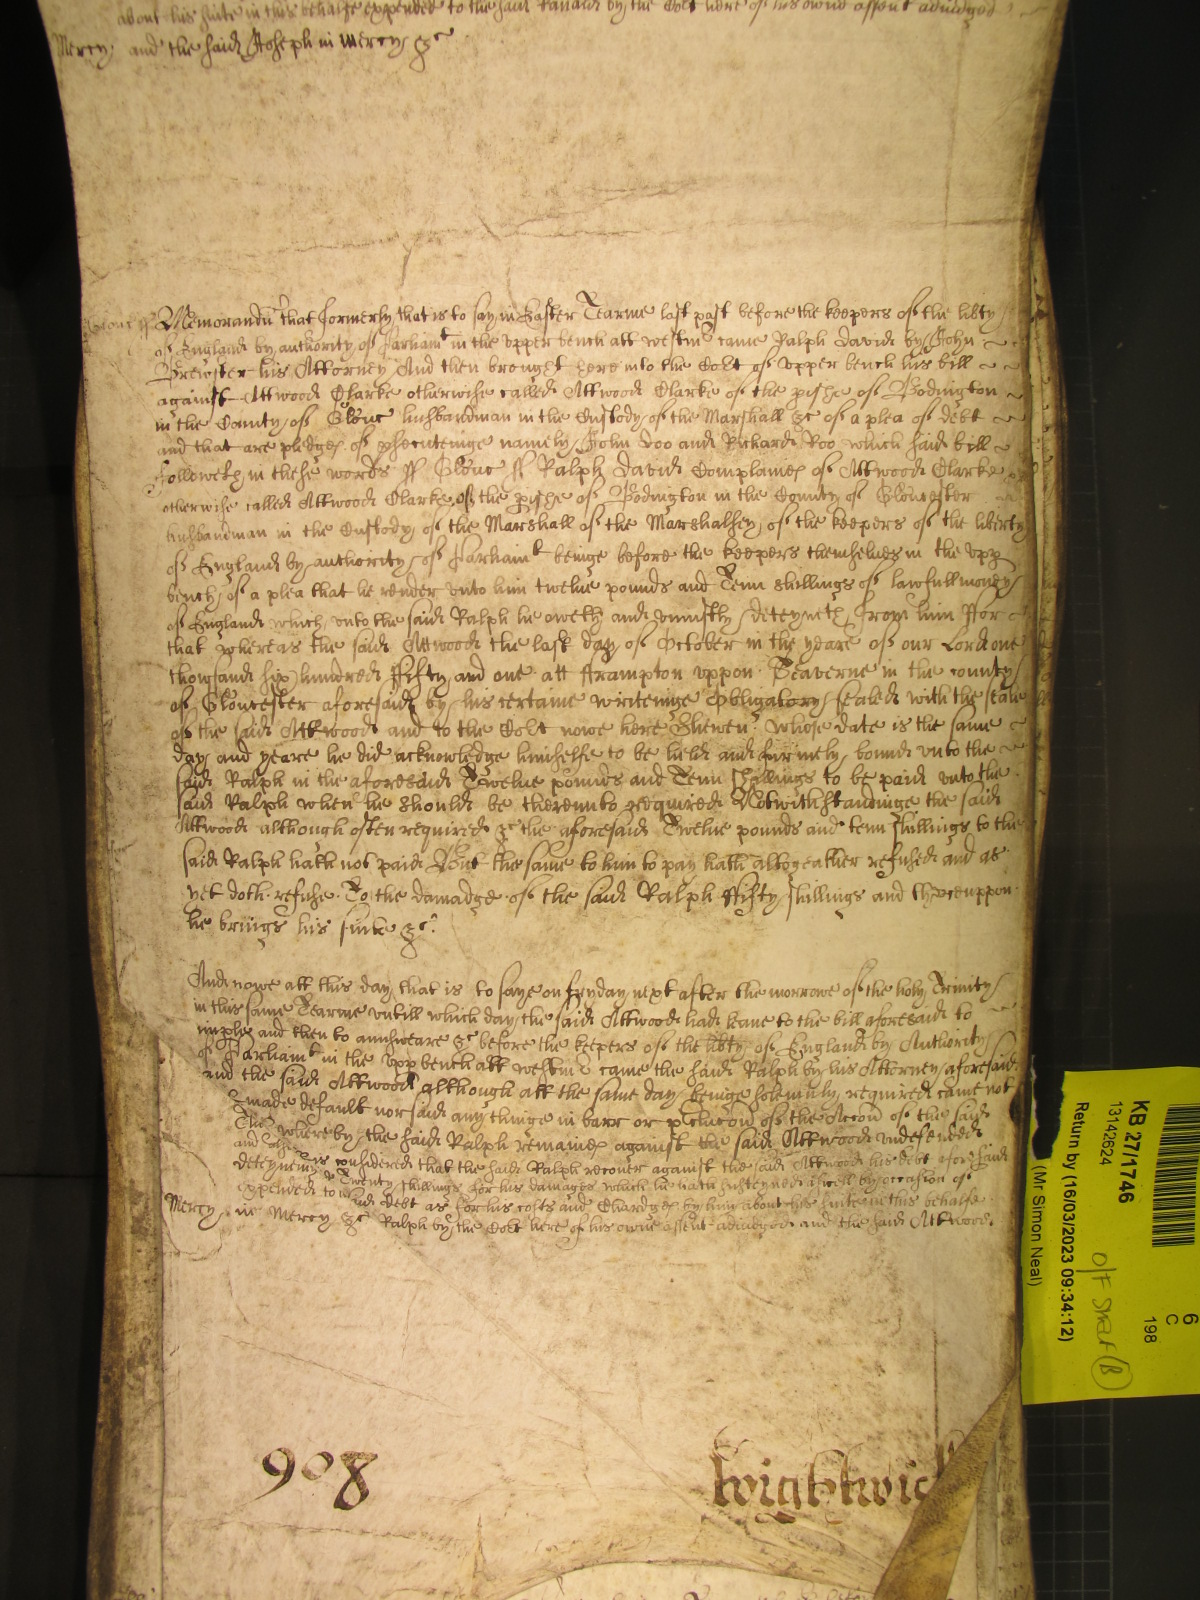 about his suite in this behalfe expended to the said by the Cort here of his owne assent adiudged
Mercy and the said Joseph in mercy &c
Glouc ss Memorandu that formerly that is to say in Easter Tearme last past before the keepers of the libty
of England by authority of Parliamt in the vpper bench att westm came Ralph David by John
Brewster his Attorney And then brought here into the Cort of vpper bench his bill
against Attwood Clarke otherwise called Attwood Clarke of the pishe of Bodington
in the County of Glouc husbandman in the Custody of the Marshall &c of a plea of debt
and that are pledges of psecuteinge namely John Doo and Richard Roo which said bill
followeth in these words ss Glouc ss Ralph David Complaines of Attwood Clarke
otherwise called Attwood Clarke of the pishe of Bodington in the County of Gloucester
husbandman in the Custody of the Marshall of the Marshalsey of the keepers of the liberty
of England by authority of Parliamt beinge before the keepers themselves in the vpp
bench of a plea that he render vnto him twelue pounds and Tenn shillings of lawfull money
of England which vnto the said Ralph he oweth and vniustly deteyneth from him ffor
that whereas the said Attwood the last day of October in the yeare of our Lord one
thowsand six hundred ffifty and one att fframpton vppon Seaverne in the county
of Gloucester aforesaid by his certaine writeinge Obligatory sealed with the seale
of the said Attwood and to the Cort nowe here Shewen whose date is the same
day and yeare he did acknowledge himselfe to be held and firmely bound vnto the
said Ralph in the aforesaid Twelue pounds and Tenn shillings to be paid vnto the
said Ralph when he should be therevnto required Notwithstandinge the said
Attwood although often required &c the aforesaid Twelue pounds and tenn shillings to the
said Ralph hath not paid But the same to him to pay hath altogeather refused and as
yet doth refuse To the damadge of the said Ralph ffifty shillings and therevppon
he brings his suite &c
And nowe att this day that is to saye on fryday next after the morrowe of the holy Trinity
in this same Tearme vntill which day the said Attwood had leaue to the bill aforesaid to
imple and then to annsweare &c before the keepers of the libty of England by Authority
of Parliamt in the vpp bench att westm came the said Ralph by his Attorney aforesaid
and the said Attwood although att the same day beinge solemnly required came not
made default nor said any thinge in barr or pclucon of the Accon of the said
whereby the said Ralph remaines against the said Attwood vndefended
and is considered that the said Ralph recouer against the said Attwood his debt aforesaid
Twenty shillings for his damages which he hath susteyned aswell by occasion of
deteyneing debt as for his costs and Chardges by him about his suite in this behalfe
expended to Ralph by the Cort here of his owne assent adiudged and the said Attwood
Mercy in Mercy &c
908
Wightwic
KB 27/1746
13142624
Return by (16/03/2023 09:34:12)
(Mr Simon Neal)
6
C
198
O/F Shelf (B)